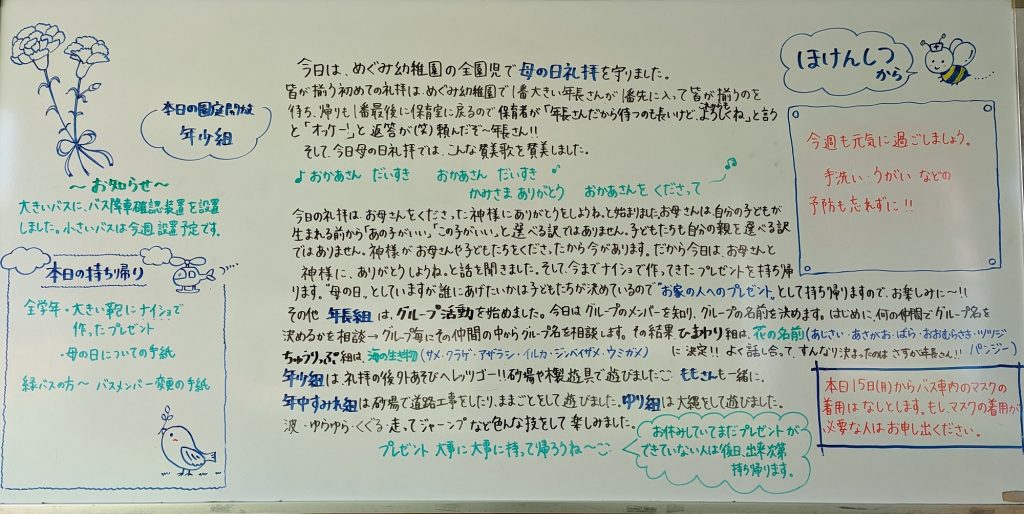 本日の園庭開放は
年少組
～お知らせ～
大きいバスに、バス降車確認装置を設置
しました。小さいバスは今週設置予定です。
本日の持ち帰り
全学年・大きい鞄にナイショで
作ったプレゼント
・母の日についての手紙
緑バスの方～バスメンバー変更の手紙
今日は、めぐみ幼稚園の全園児で母の日礼拝を守りました。
皆が揃う初めての礼拝は、めぐみ幼稚園で1番大きい年長さんが1番先に入って皆が揃うのを
待ち、帰りも1番最後に保育室に戻るので保育者が「年長さんだから待つのも長いけど、よろしくね」と言う
と「オッケー!」と返答が(笑)頼んだぞ～年長さん!!
そして、今日母の日礼拝では、こんな賛美歌を賛美しました。
♪おかあさん だいすき おかあさん だいすき
かみさま ありがとう おかあさんを くださって
今日の礼拝は、お母さんをくださった神様にありがとうをしようね、と始まりました。お母さんは、自分の子どもが
生まれる前から「あの子がいい」「この子がいい」と選べる訳ではありません。子どもたちも自分の親を選べる訳
ではありません。神様がお母さんや子どもたちをくださったから今があります。だから今日は、お母さんと
神様に、ありがとうしようね、と話を聞きました。そして、今までナイショで作ってきたプレゼントを持ち帰り
ます。"母の日"としていますが誰にあげたいかは子どもたちが決めているので"お家の人へのプレゼント"として持ち帰りますので、お楽しみに～!!
その他 年長組は、グループ活動を始めました。今日はグループのメンバーを知り、グループの名前を決めます。はじめに、何の仲間でグループ名を
決めるかを相談→グループ毎にその仲間の中からグループ名を相談します。その結果ひまわり組は、花の名前(あじさい・あさがお・ばら・おおむらさき・ツツジ・パンジー)
ちゅうりっぷ組は、海の生き物(サメ・クラゲ・アザラシ・イルカ・ジンベイザメ・ウミガメ)に決定!!よく話し合って、すんなり決まったのはさすが年長さん!!
年少組は礼拝の後外あそびへレッツゴー!!砂場や木製遊具で遊びました ももさんも一緒に。
年中すみれ組は砂場で道路工事をしたり、ままごとをして遊びました。ゆり組は大縄をして遊びました。
波・ゆらゆら・くぐる・走ってジャーンプなど色んな技をして楽しみました。
プレゼント 大事に大事に持って帰ろうね～
お休みしていてまだプレゼントが
できていない人は後日、出来次第
持ち帰ります。
ほけんしつ
から
今週も元気に過ごしましょう。
手洗い・うがい などの
予防も忘れずに!!
本日15日(月)からバス車内のマスクの
着用はなしとします。もし、マスクの着用が
必要な人はお申し出ください。